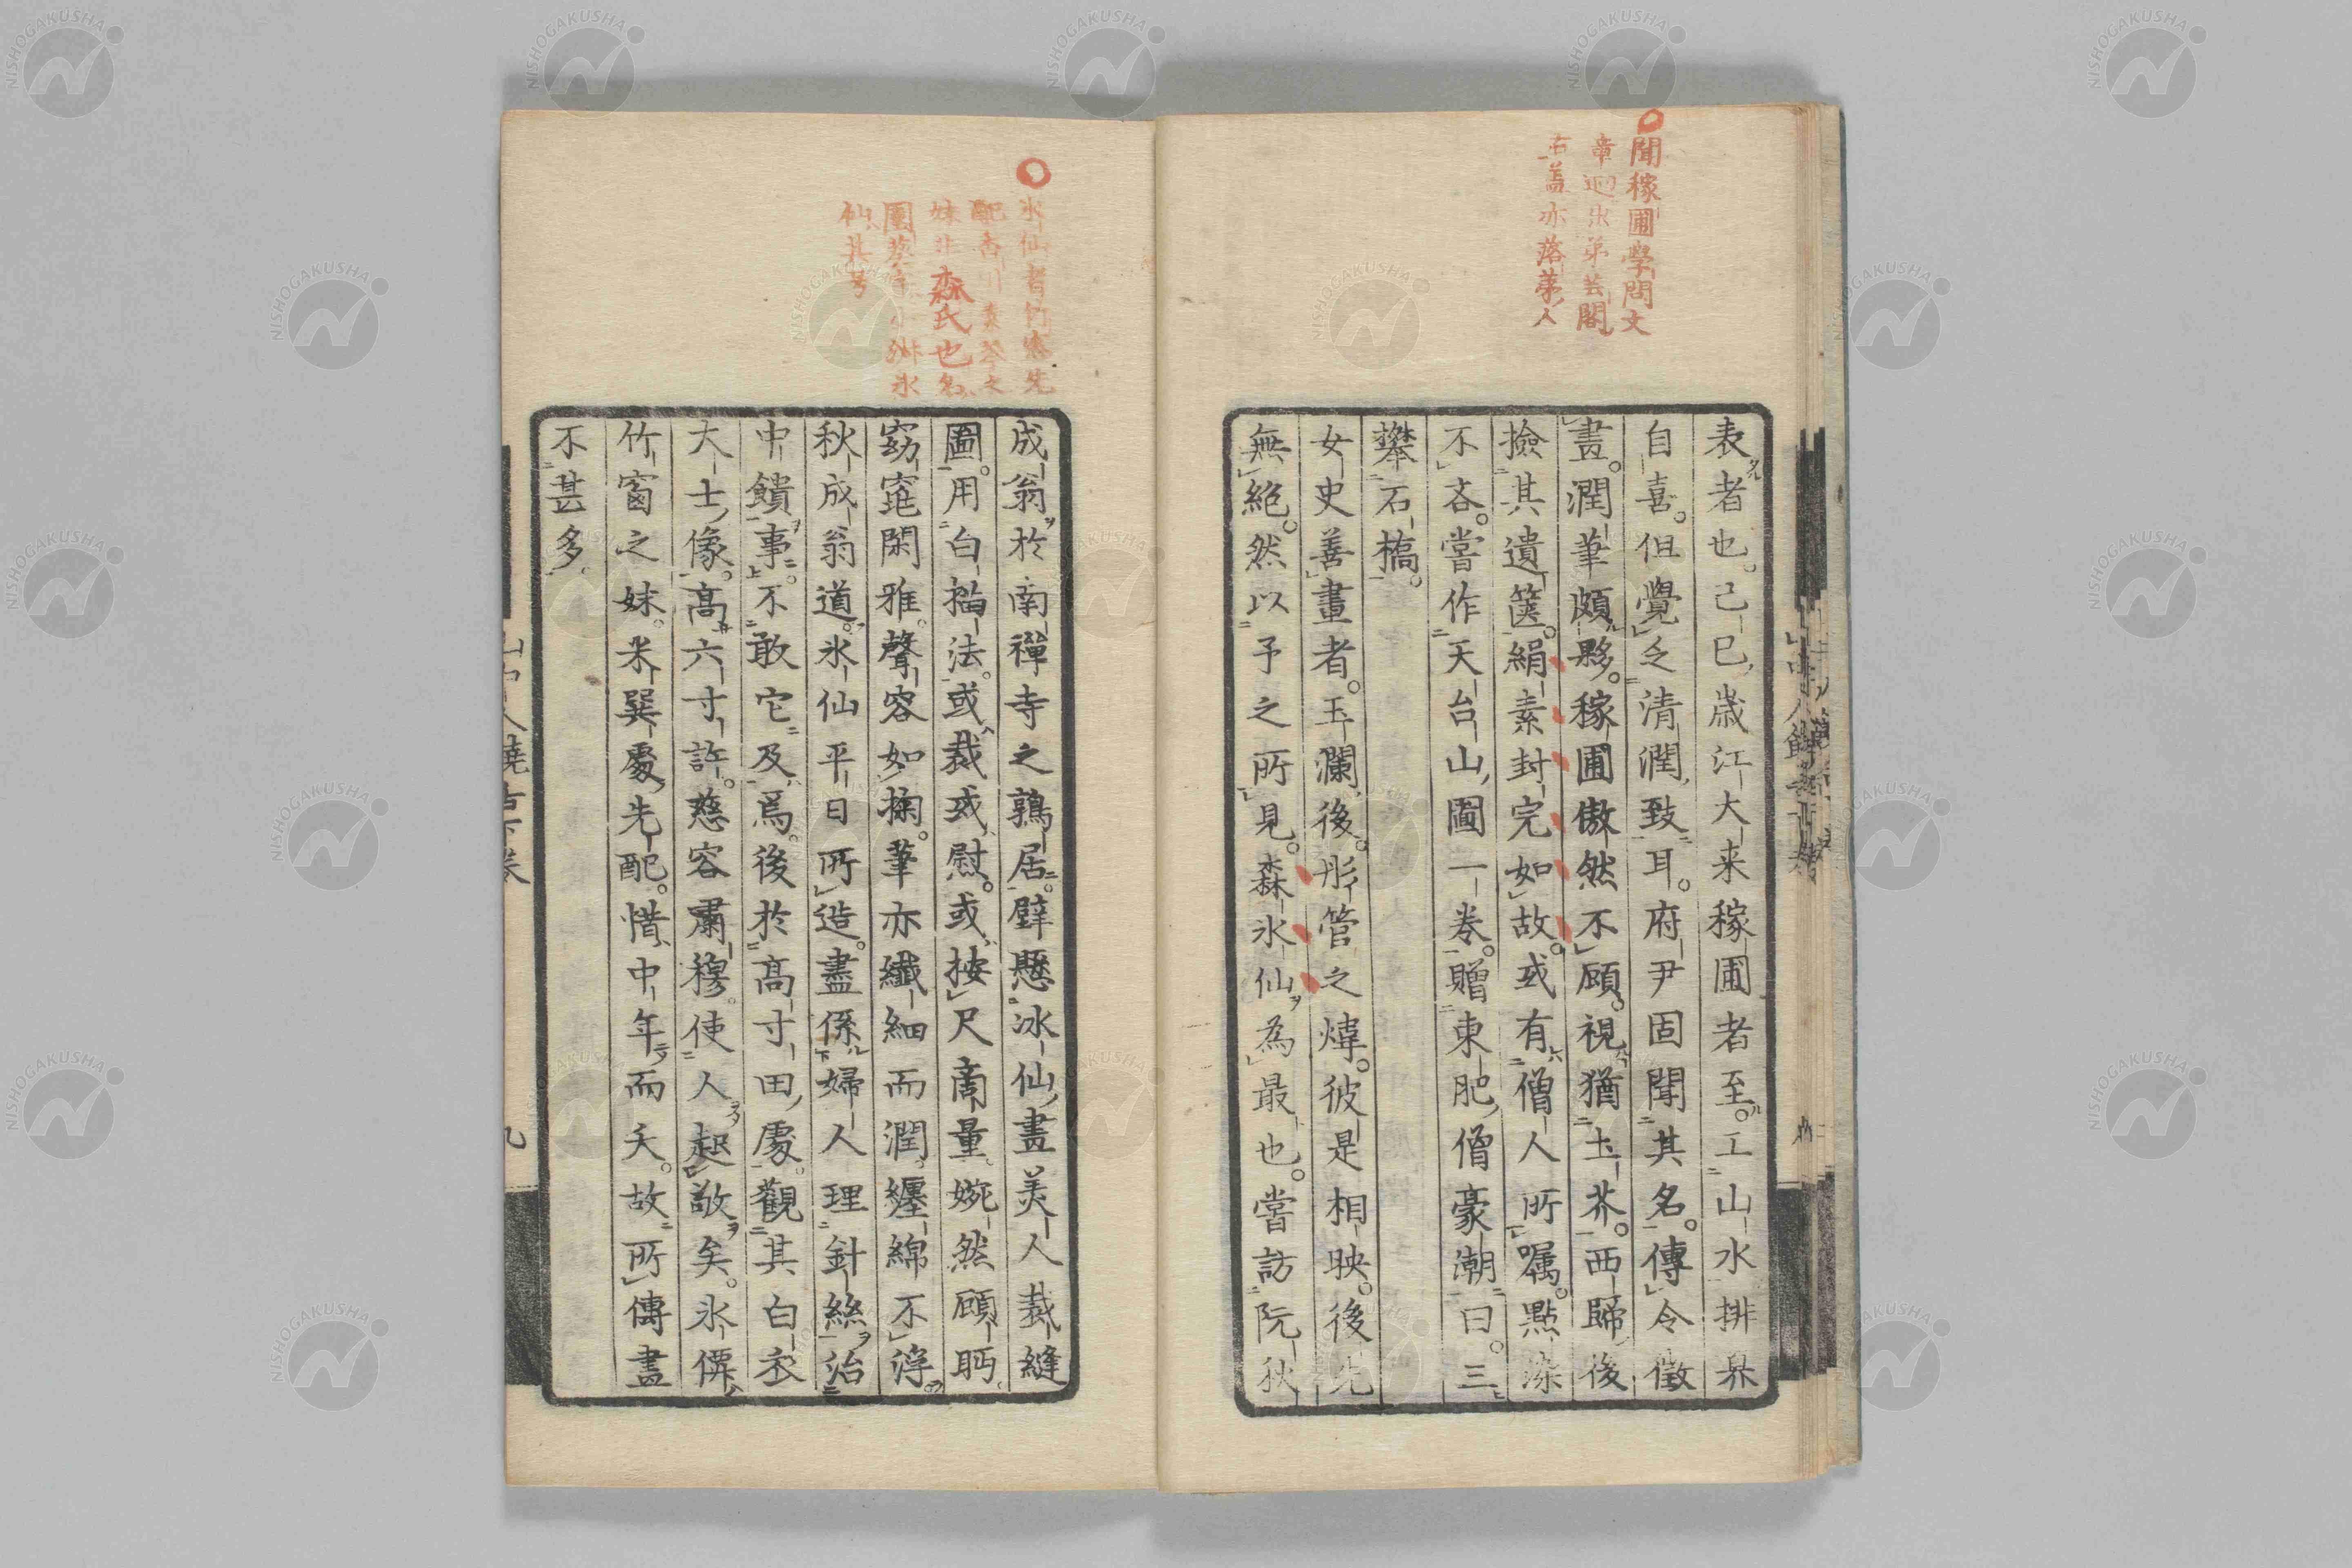 聞稼圃學問文
章迥出弟芸閣
右蓋亦落第人
表者也。己巳歲江大来稼圃者至。工山水排界
自喜。但覺乏清潤致耳。府尹固聞其名。傳令徵
畫。潤筆頗夥。稼圃傲然不顧。視猶土芥。西歸後
撿其遺篋。絹素封完如故。或有僧人所囑。點染
不吝。嘗作天台山圖一卷。贈東肥僧豪潮曰。三
攀石橋。
女史善畫者。玉瀾後。彤管之煒。彼是相映。後先
無絕。然以予之所見。森氷仙為最也。嘗訪阮秋
氷仙者竹窓先
配香川素琴之
妹非森氏也名
仙其号
成翁於南禪寺之鶉居。壁懸冰仙畫美人裁縫
圖。用白描法。或裁或慰。或按尺商量。婉然顧眄。
窈窕閑雅。聲容如掬。筆亦纖細而潤。纏綿不浮。
秋成翁道。氷仙平日所造。盡係婦人理針絲治
中饋事。不敢它及焉。後於高寸田處。觀其白衣
大士像。高六寸許。慈容肅穆。使人起敬矣。氷僊
竹窗之妹。米巽處先配。惜中年而夭。故所傳畫
不甚多。
九